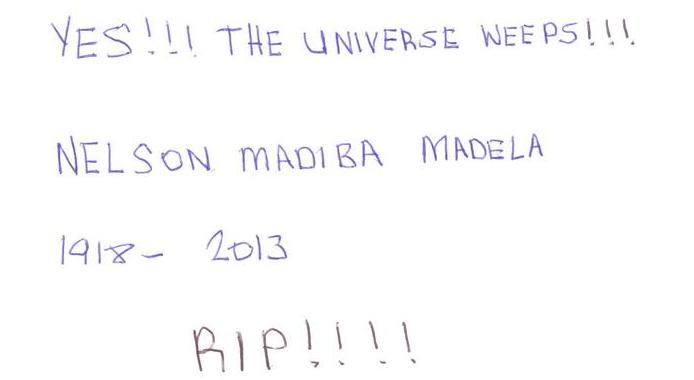 YES!!! THE UNIVERSE WEEPS!!!
NELSON MADIBA MADELA
1918- 2013
RIP!!!!